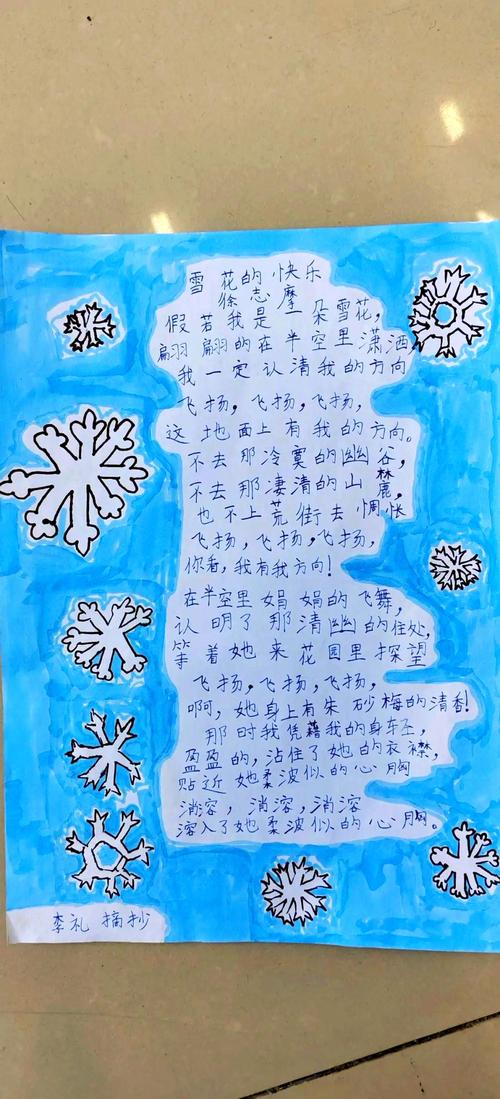 雪花的快乐
徐志摩
假若我是一朵雪花,
翩翩的在半空里潇洒,
我一定认清我的方向
飞扬,飞扬,飞扬,
这地面上有我的方向。
不去那冷寞的幽谷,
不去那凄清的山麓,
也不上荒街去惆怅
飞扬,飞扬,飞扬,
你看,我有我方向!
在半空里娟娟的飞舞,
认明了那清幽的住处,
等着她来花园里探望
飞扬,飞扬,飞扬,
啊,她身上有朱砂梅的清香!
那时我凭藉我的身轻,
盈盈的,沾住了她的衣襟,
贴近她柔波似的心胸
消溶,消溶,消溶
溶入了她柔波似的心胸。
李礼 摘抄